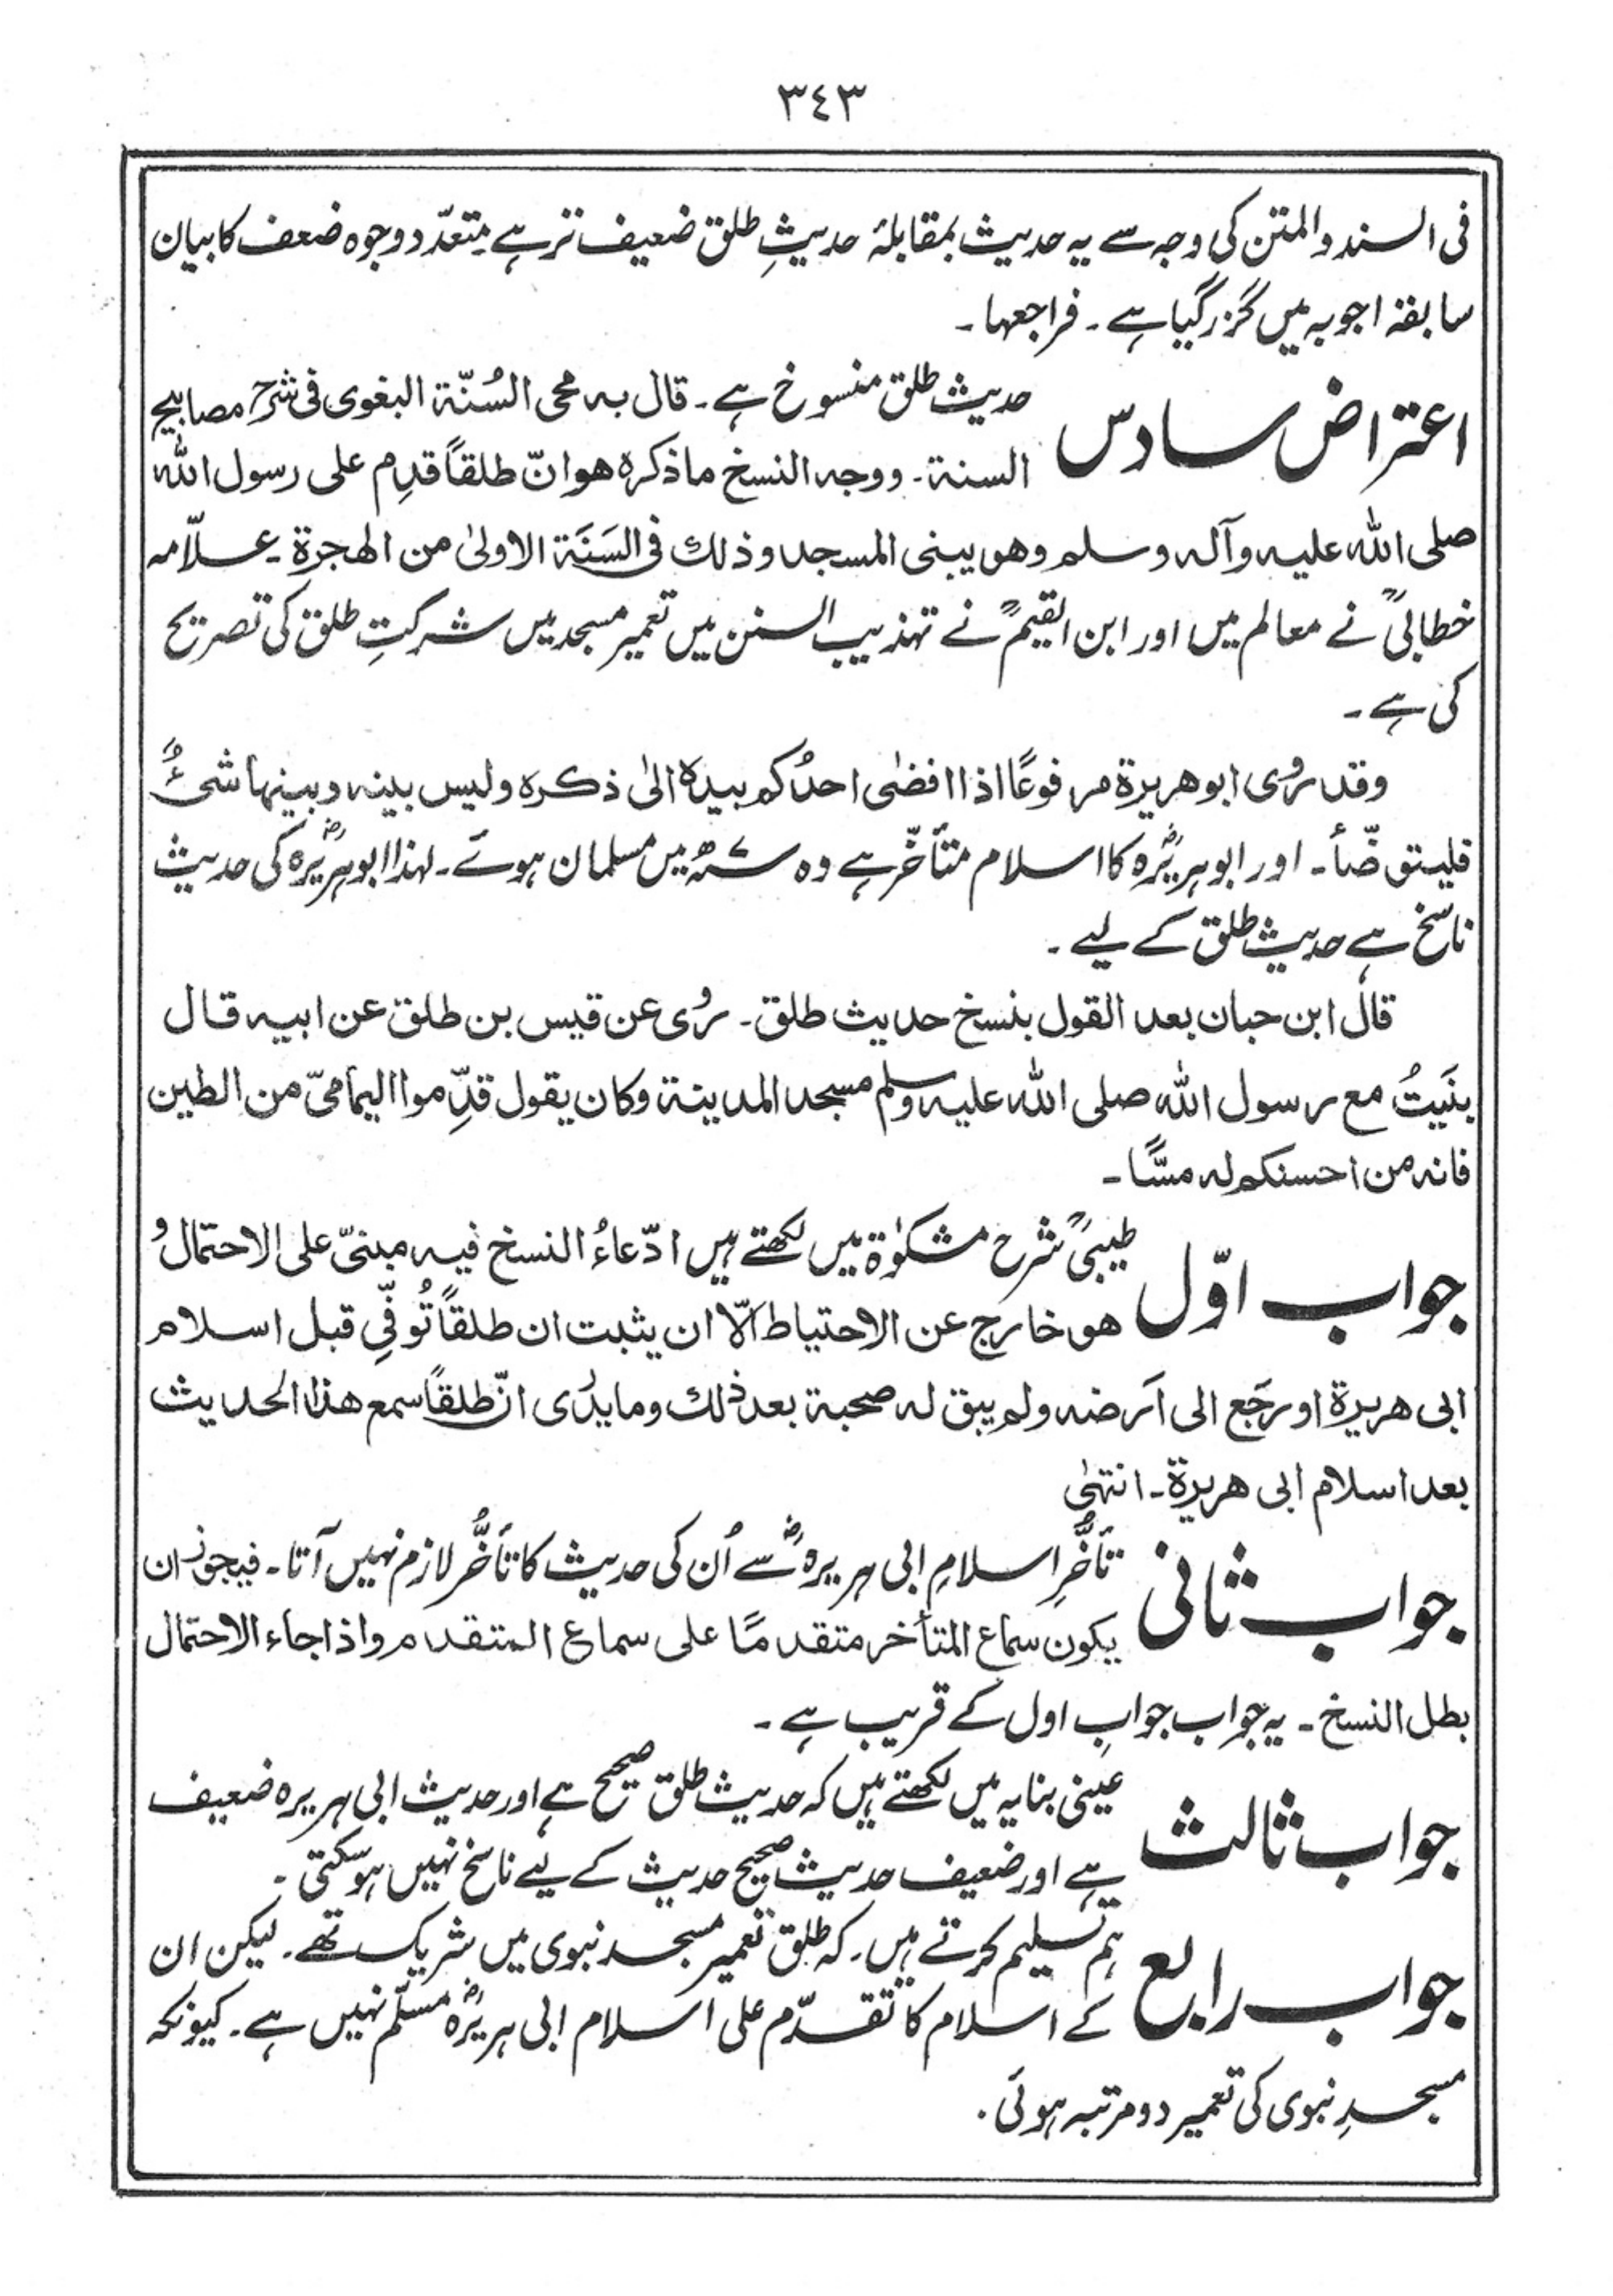 ٣٤٣
فی السند والمتن کی وجہ سے یہ حدیث بمقابلۂ حدیثِ طلق ضعیف تر ہے۔ متعدّد وجوہ ضعف کا بیان
سابقہ اجوبہ میں گزر گیا ہے ۔ فراجعہا ۔
اعتراض سادس
حدیث طلق منسوخ ہے ۔ قال بہ محی السُنّۃ البغوی فی شرح مصابیح
السنۃ ۔ ووجہ النسخ ماذکرہ ھو انّ طلقاً قدِم علی رسول اللہ
صلی اللہ علیہ وآلہ وسلم وھو یبنی المسجد وذلك فی السَنَۃ الاولیٰ من الھجرۃ ۔ علّامہ
خطابیؒ نے معالم میں اور ابن القیمؒ نے تہذیب السنن میں تعمیر مسجد میں شرکتِ طلق کی تصریح
کی ہے ۔
وقد رُوی ابوھریرۃ مرفوعًا اذا افضٰی احدُکم بیدہ الیٰ ذکرہ ولیس بینہ وبینہا شیءٌ
فلیتوضّأ ۔ اور ابوہریرہؓ کا اسلام متأخّر ہے وہ ۷ھ میں مسلمان ہوئے ۔ لہذا ابوہریرہؓ کی حدیث
ناسخ ہے حدیث طلق کے لیے ۔
قال ابن حبان بعد القول بنسخ حدیث طلق ۔ رُوی عن قیس بن طلق عن ابیہ قال
بنَیتُ مع رسول اللہ صلی اللہ علیہ وسلم مسجد المدینۃ وکان یقول قدِّموا الیمامیّ من الطین
فانہ من احسنکم لہ مسًّا ۔
جواب اوّل
طیبیؒ شرح مشکوٰۃ میں لکھتے ہیں ادّعاءُ النسخ فیہ مبنیّ علی الاحتمال و
ھو خارج عن الاحتیاط الّا ان یثبت ان طلقاً تُوفّی قبل اسلام
ابی ھریرۃ او رجَع الی اَرضہ ولم یبق لہ صحبۃ بعد ذلك وما یدرٰی انّ طلقاً سمع ھذا الحدیث
بعد اسلام ابی ھریرۃ ۔ انتہٰی
جواب ثانی
تأخُّرِ اسلامِ ابی ہریرہؓ سے اُن کی حدیث کا تأخُّر لازم نہیں آتا ۔ فیجوز ان
یکون سماع المتأخر متقدمًا علی سماع المتقدم واذا جاء الاحتمال
بطل النسخ ۔ یہ جواب جوابِ اول کے قریب ہے ۔
جواب ثالث
عینی بنایہ میں لکھتے ہیں کہ حدیث طلق صحیح ہے اور حدیث ابی ہریرہ ضعیف
ہے اور ضعیف حدیث صحیح حدیث کے لیے ناسخ نہیں ہوسکتی ۔
جواب رابع
ہم تسلیم کرتے ہیں ۔ کہ طلق تعمیر مسجد نبوی میں شریک تھے ۔ لیکن ان
کے اسلام کا تقدّم علی اسلام ابی ہریرہؓ مسلّم نہیں ہے ۔ کیونکہ
مسجدِ نبوی کی تعمیر دو مرتبہ ہوئی ۔